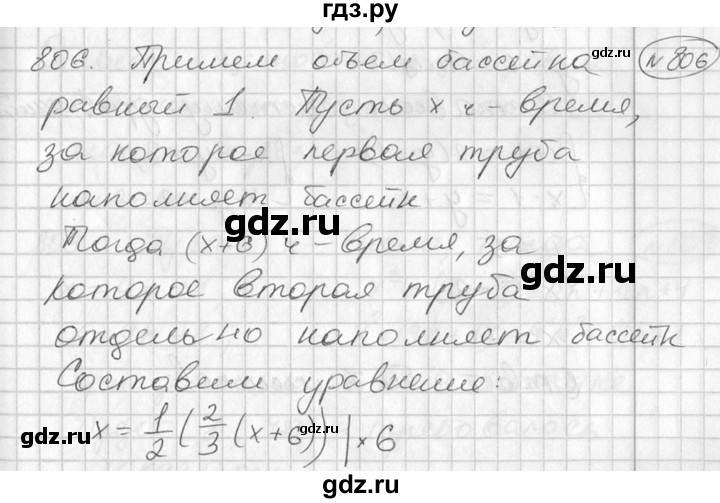 гдз.ру
806. Примем объем бассейна №806
gdz.ru
равный 1. Пусть x ч - время,
за которое первая труба
gdz.ru
наполняет бассейн
gdz.ru
Тогда (x+6) ч - время, за
gdz.ru
которое вторая труба
gdz.ru
отдельно наполняет бассейн
gdz.ru
Составим уравнение:
x = 1/2 (2/3 (x+6)) | × 6
gdz.ru
gdz.ru
gdz.ru